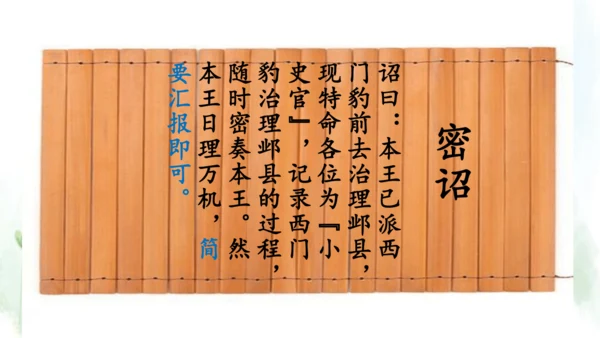 密诏
诏曰：本王已派西
门豹前去治理邺县，
现特命各位为『小
史官』，记录西门
豹治理邺县的过程，
随时密奏本王。然
本王日理万机，简
要汇报即可。